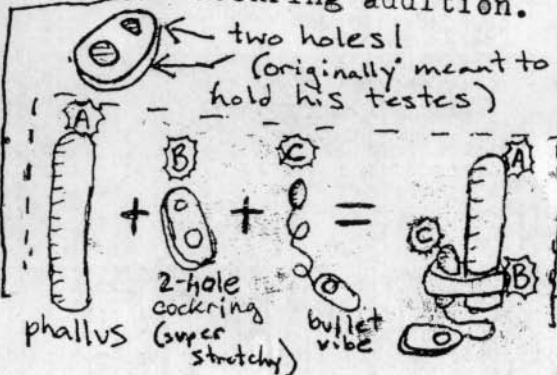 cockring addition.
two holes!
(originally meant to
hold his testes)
A
B
C
A
+
+
=
C
B
phallus
2-hole
cockring
(super
stretchy)
bullet
vibe